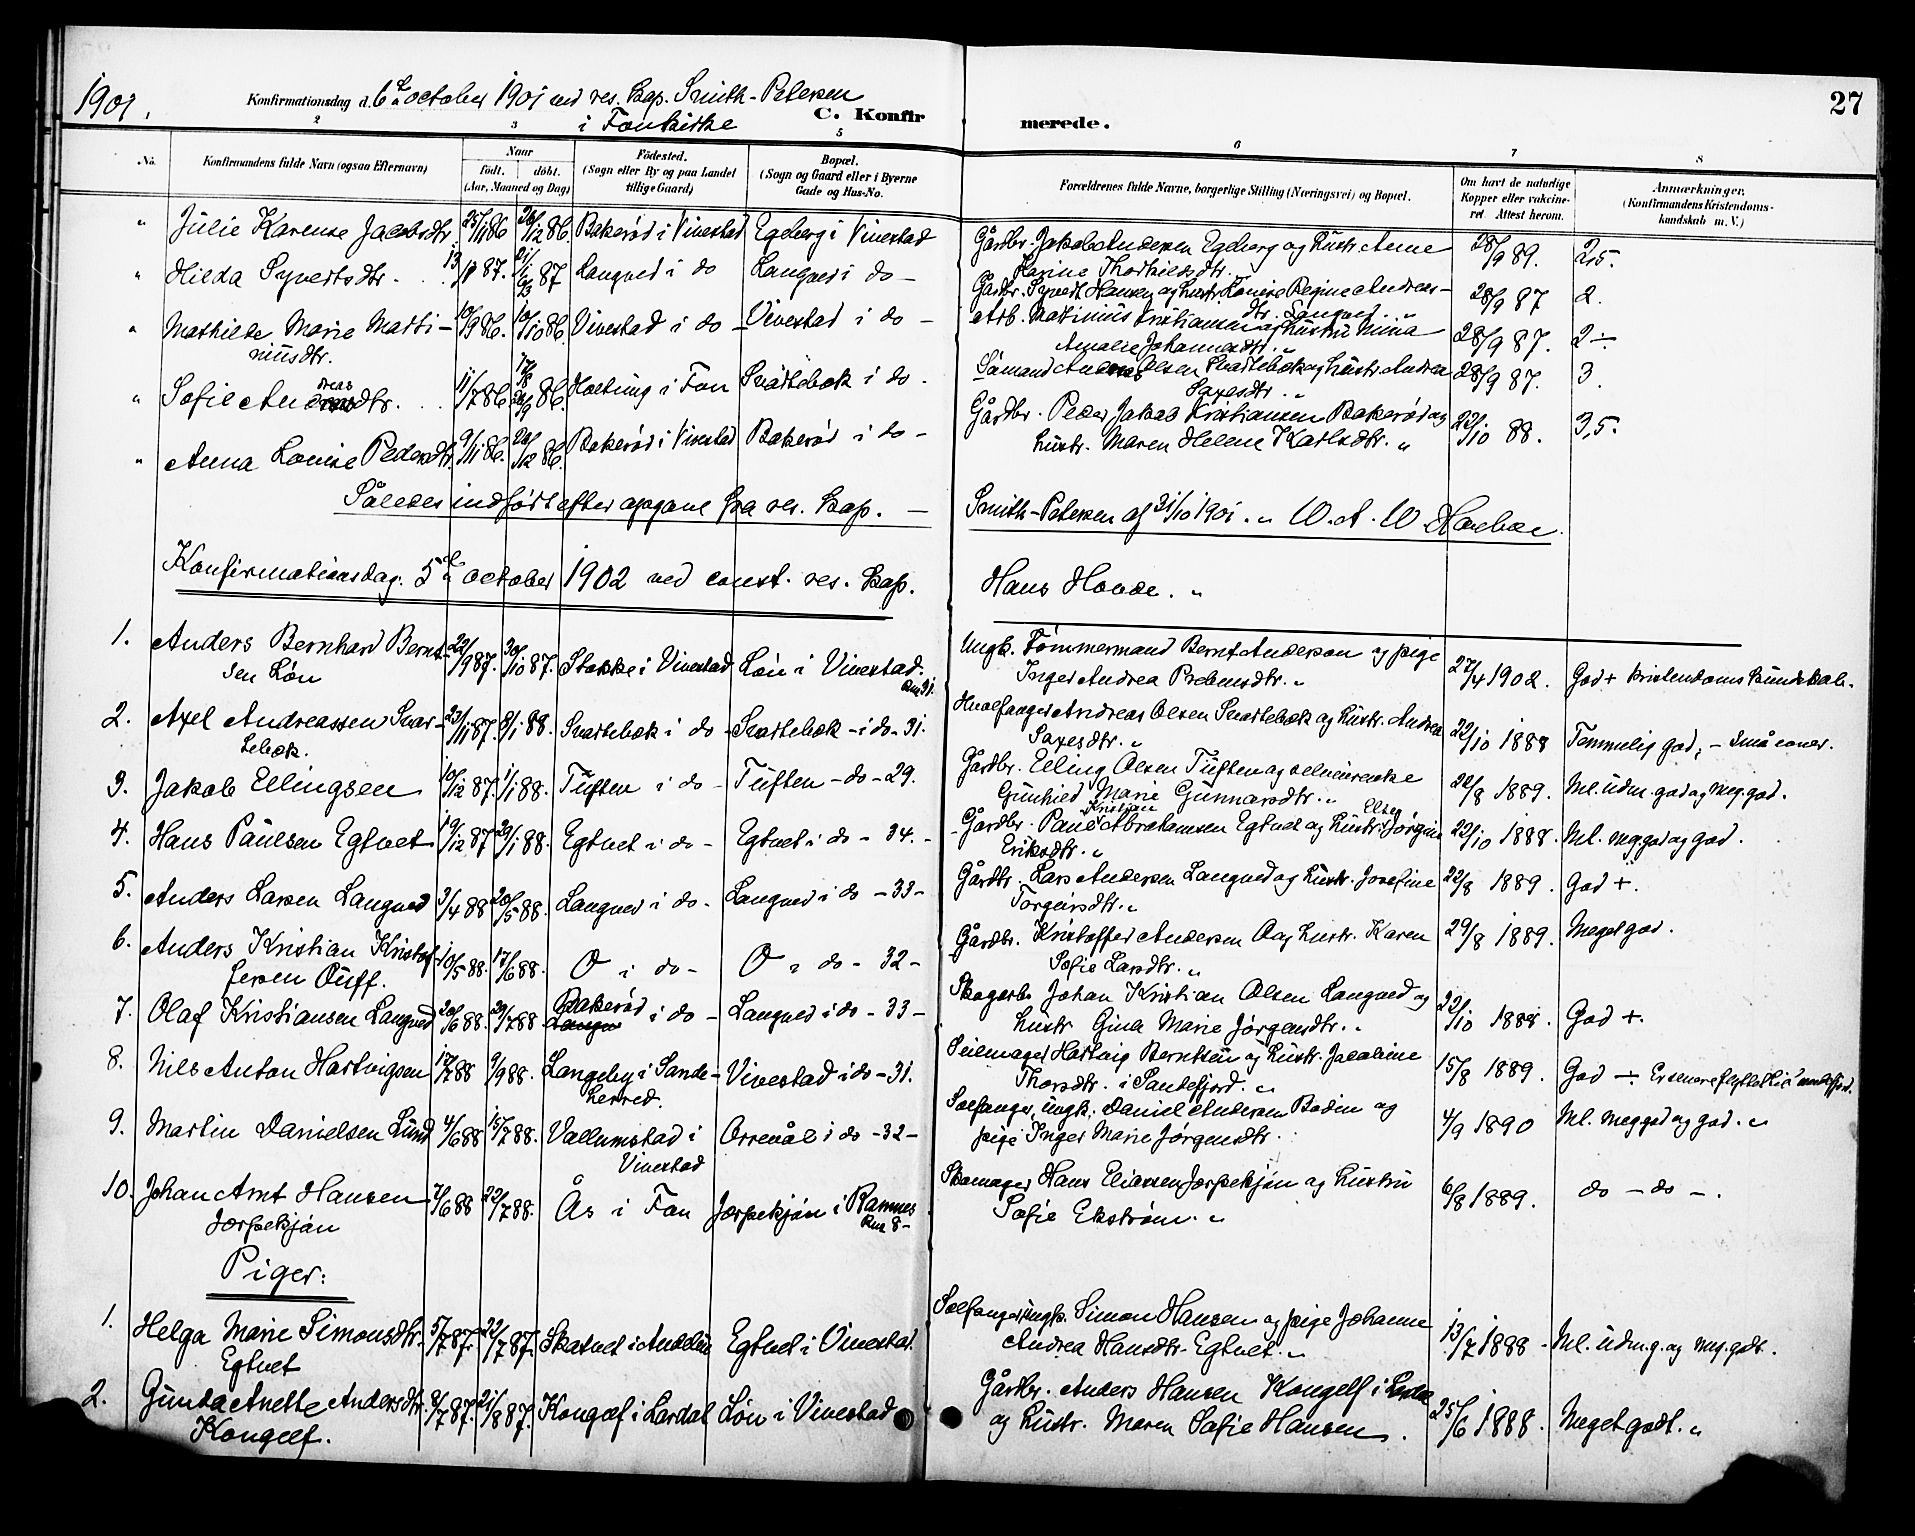 1901.
Konfirmationsdag d. 6te october 1901 ved res. Kap. Smith-Petersen
i Fon kirke
C. Konfirmerede.
27
2 3 5 6 7 8
No.
Konfirmandens fulde Navn (ogsaa Efternavn)
Naar
født. døbt.
(Aar, Maaned og Dag)
Fødested.
(Sogn eller By og paa Landet
tillige Gaard)
Bopæl.
(Sogn og Gaard eller i Byerne
Gade og Hus-No.
Forældrenes fulde Navne, borgerlige Stilling (Næringsvei) og Bopæl.
Om havt de naturlige
Kopper eller vakcine-
ret. Attest herom.
Anmærkninger.
(Konfirmandens Kristendoms-
kundskab m. V.)
" Julie Karense Jacobsdtr. 25/11 86 26/12 86. Bakerød i Vivestad Egeberg i Vivestad Gårdbr. Jakob Andersen Egeberg og hustr. Anne 28/9 89. 2,5.
Karine Thorkildsdtr.
" Hilda Syvertsdtr. 13/1 87. 87 Langved i do Langved i do - Gårdbr. Syvert Hansen og hustr. Lovise Regine Andreas- 28/9 87 2.
dtr. Langved. "
" Mathilde Marie Marti- 10/9 86. 10/10 86 Vivestad i do - Vivestad i do - Arb. Matinius Kristiansen og hustru Mina 28/9 87. 2 ÷
niusdtr.
Amalie Johannesdtr. "
" Sofie Andreasdtr. 11/7 86. 86. Holtung i Fon Svartebæk i do. Sømand Andreas Olsen Svartebæk og hustr. Andrea 28/9 87. 3.
Saxesdtr. "
" Anna Lovise Pedersdtr. 9/11 86. 26/12 86. Bakerød i Vivestad Bakerød i do - Gårdbr. Peder Jakob Kristiansen Bakerød og 22/10 88. 3,5.
hustr. Maren Helene Karlsdtr. "
Således indført efter opgave fra res. Kap. - Smith-Petersen af 31/10 1901. " W. A. W. Harboe.
Konfirmationsdag. 5te october 1902 ved const. res. Kap. Hans Hovde. "
1. Anders Bernhard Bernt- 22/9 87. 30/10 87. Stokke i Vivestad Løn i Vivestad. Ungk. Tømmermand Bernt Anderson og pige 27/4 1902. God + kristendomskundskab.
sen Løn
Rm 31.
Inger Andrea Prebensdtr. "
2. Axel Andreassen Svar- 23/11 87. 8/1 88. Svartebæk i do - Svartebæk - i do - 31. Hvalfanger Andreas Olsen Svartebæk og hustr. Andrea 22/10 1888 Temmelig god, - små evner.
tebæk.
Saxesdtr. "
3. Jakob Ellingsen 10/12 87. 1/1 88. Tuften i do - Tuften - do - 29. Gårdbr. Elling Olsen Tuften og 22/8 1889. Ml. udm. god og meg. god.
Gunhild Marie Gunnarsdtr. "
4. Hans Paulsen Egtvet 19/12 87 29/1 88. Egtvet i do - Egtvet i do - 34. - Gårdbr. Paul Kristian Abrahamsen Egtvet og hustr. Elsy Jørgine 22/10 1888. Ml. meg. god og god.
Eriksdtr. "
5. Anders Larsen Langved 3/4 88 20/5 88. Langved i do - Langved i do - 33 - Gårdbr. Lars Andersen Langved og hustr. Josefine 22/8 1889. God +.
Torgersdtr. "
6. Anders Kristian Kristof- 10/5 88. 17/6 88. O i do - O " do - 32 - Gårdbr. Kristoffer Andersen O og hustr. Karen 29/8 1889. Meget god.
fersen Ouff.
Sofie Larsdtr. "
7. Olaf Kristiansen Langved 20/6 88. 29/7 88 Bakerød i do - Langved i do - 33 - Skogarb. Johan Kristian Olsen Langved og 22/10 1888. God +.
Langv
hustr. Gina Marie Jørgensdtr. "
8. Nils Anton Hartvigsen 17/7 88 9/9 88. Langeby i Sande- Vivestad i do - 31. Seilmager Hartvig Berntsen og hustr. Jacobine 15/8 1889. God ÷. Er senere flyttet til Sandefjord.
herred.
Thorsdtr. i Sandefjord. "
9. Martin Danielsen Lund 4/6 88 15/7 88. Vallumstad i Orrevål i do - 32 - Sælfanger, ungk. Daniel Andersen Bøden og 4/9 1890 Ml. meg. god og god. "
Vivestad
pige Inger Marie Jørgensdtr.
10. Johan Arnt Hansen 7/6 88 22/7 88. Ås i Fon Jørpekjøn i Ramnes Skomager Hans Eliassen Jørpekjøn og hustru 6/8 1889. do - do -.
Jørpekjøn
Rm 8 -
Sofie Ekstrøm. "
Piger:
1. Helga Marie Simonsdtr. 5/7 87. 22/7 87. Skatvet i Andebu Egtvet i Vivestad. Sælfanger, ungk. Simon Hansen og pige Johanne 13/7 1888 - Ml. udm. g. og meg. godt.
Egtvet
Andrea Hansdtr. Egtvet. "
2. Gunda Anette Andersdtr. 9/7 87. 21/8 87. Kongelf i Lardal Løn i Vivestad Gårdbr. Anders Hansen Kongelf i Lardal 25/6 1888. Meget godt. "
Kongelf.
og hustr. Maren Sofie Hansen.